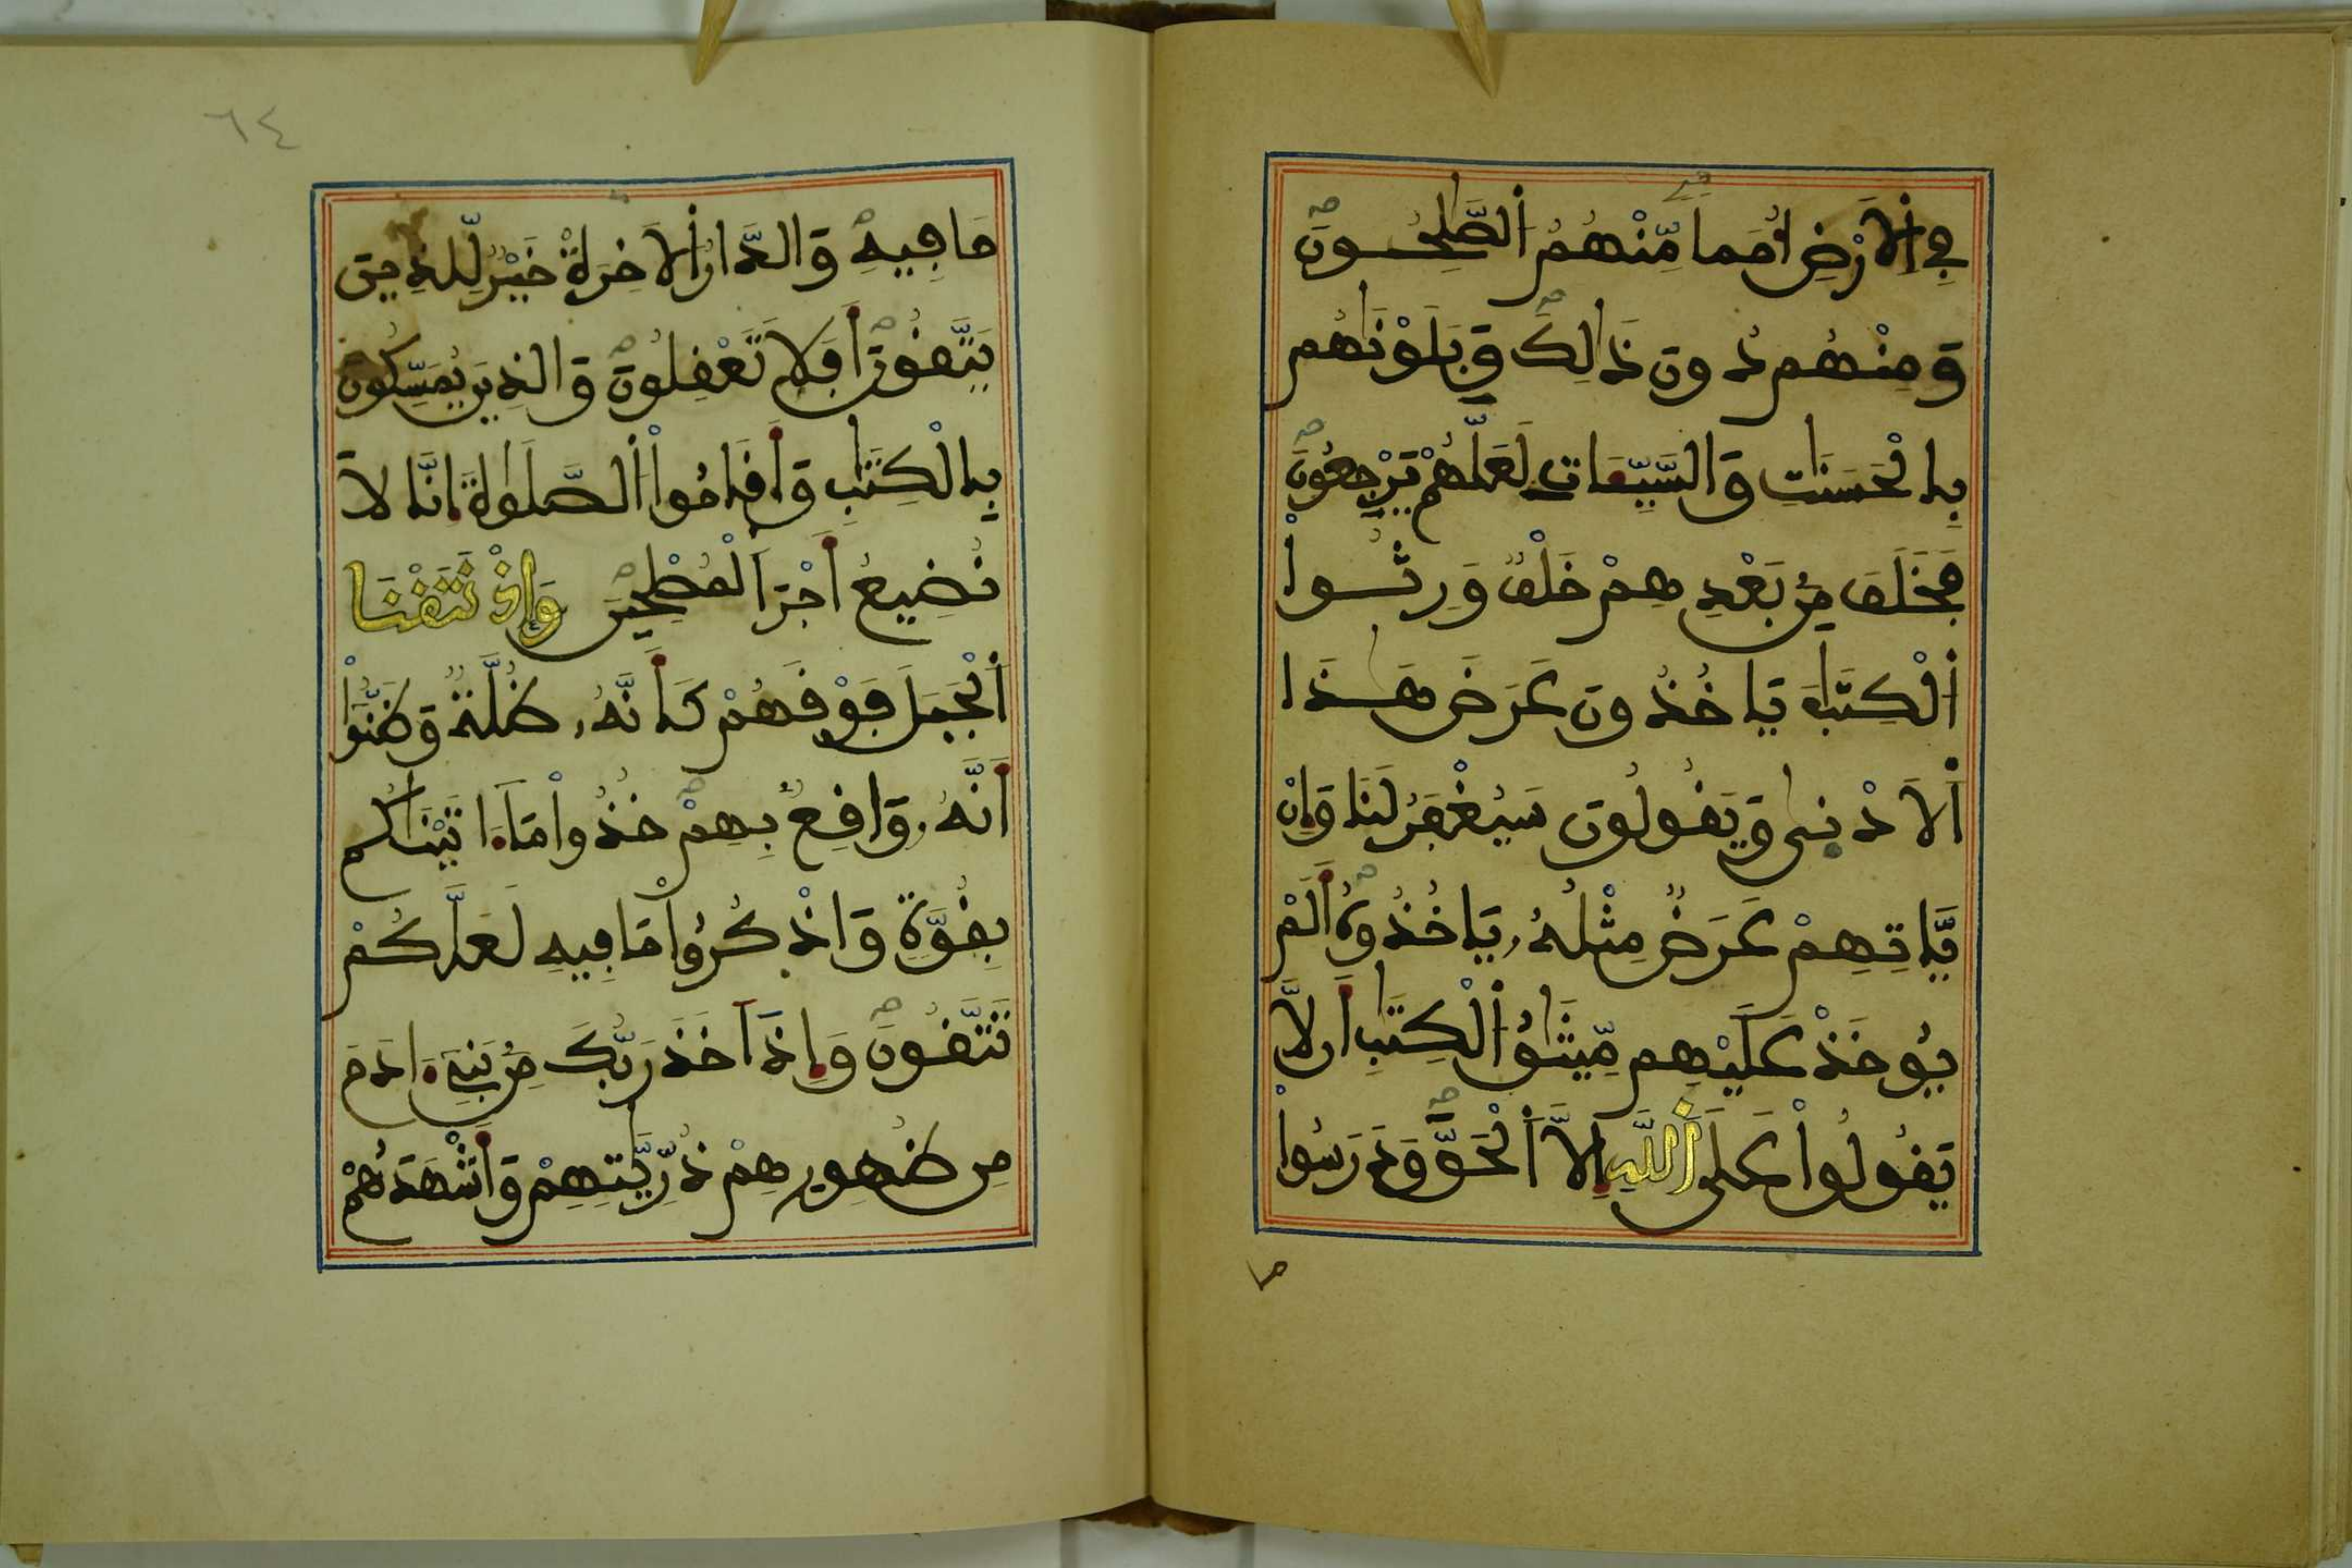 فِے اِ۬لَارْضِ أُمَماٗ مِّنْهُمُ اُ۬لصَّٰلِحُونَ
وَمِنْهُمْ دُونَ ذَٰلِكَ وَبَلَوْنَٰهُم
بِالْحَسَنَٰتِ وَالسَّيِّـَٔاتِ لَعَلَّهُمْ يَرْجِعُونَ
فَخَلَفَ مِنۢ بَعْدِهِمْ خَلْفٞ وَرِثُواْ
اُ۬لْكِتَٰبَ يَاخُذُونَ عَرَضَ هَٰذَا
اَ۬لَادْنۭيٰ وَيَقُولُونَ سَيُغْفَرُ لَنَا وَإِنْ
يَّاتِهِمْ عَرَضٞ مِّثْلُهُۥ يَاخُذُوهُ أَلَمْ
يُوخَذْ عَلَيْهِم مِّيثَٰقُ اُ۬لْكِتَٰبِ أَن لَّا
يَقُولُواْ عَلَي اَ۬للَّهِ إِلَّا اَ۬لْحَقَّ وَدَرَسُواْ
ما
٦٤
مَا فِيهِ وَالدَّارُ اُ۬لَاخِرَةُ خَيْرٞ لِّلذِينَ
يَتَّقُونَ أَفَلَا تَعْقِلُونَ وَالذِينَ يُمَسِّكُونَ
بِالْكِتَٰبِ وَأَقَامُواْ اُ۬لصَّلَوٰةَ إِنَّا لَا
نُضِيعُ أَجْرَ اَ۬لْمُصْلِحِينَ وَإِذْ نَتَقْنَا
اَ۬لْجَبَلَ فَوْقَهُمْ كَأَنَّهُۥ ظُلَّةٞ وَظَنُّواْ
أَنَّهُۥ وَاقِعُۢ بِهِمْ خُذُواْ مَآ ءَاتَيْنَٰكُم
بِقُوَّةٖ وَاذْكُرُواْ مَا فِيهِ لَعَلَّكُمْ
تَتَّقُونَ وَإِذَ اَخَذَ رَبُّكَ مِنۢ بَنِےٓ ءَادَمَ
مِن ظُهُورِهِمْ ذُرِّيَّٰتِهِمْ وَأَشْهَدَهُمْ